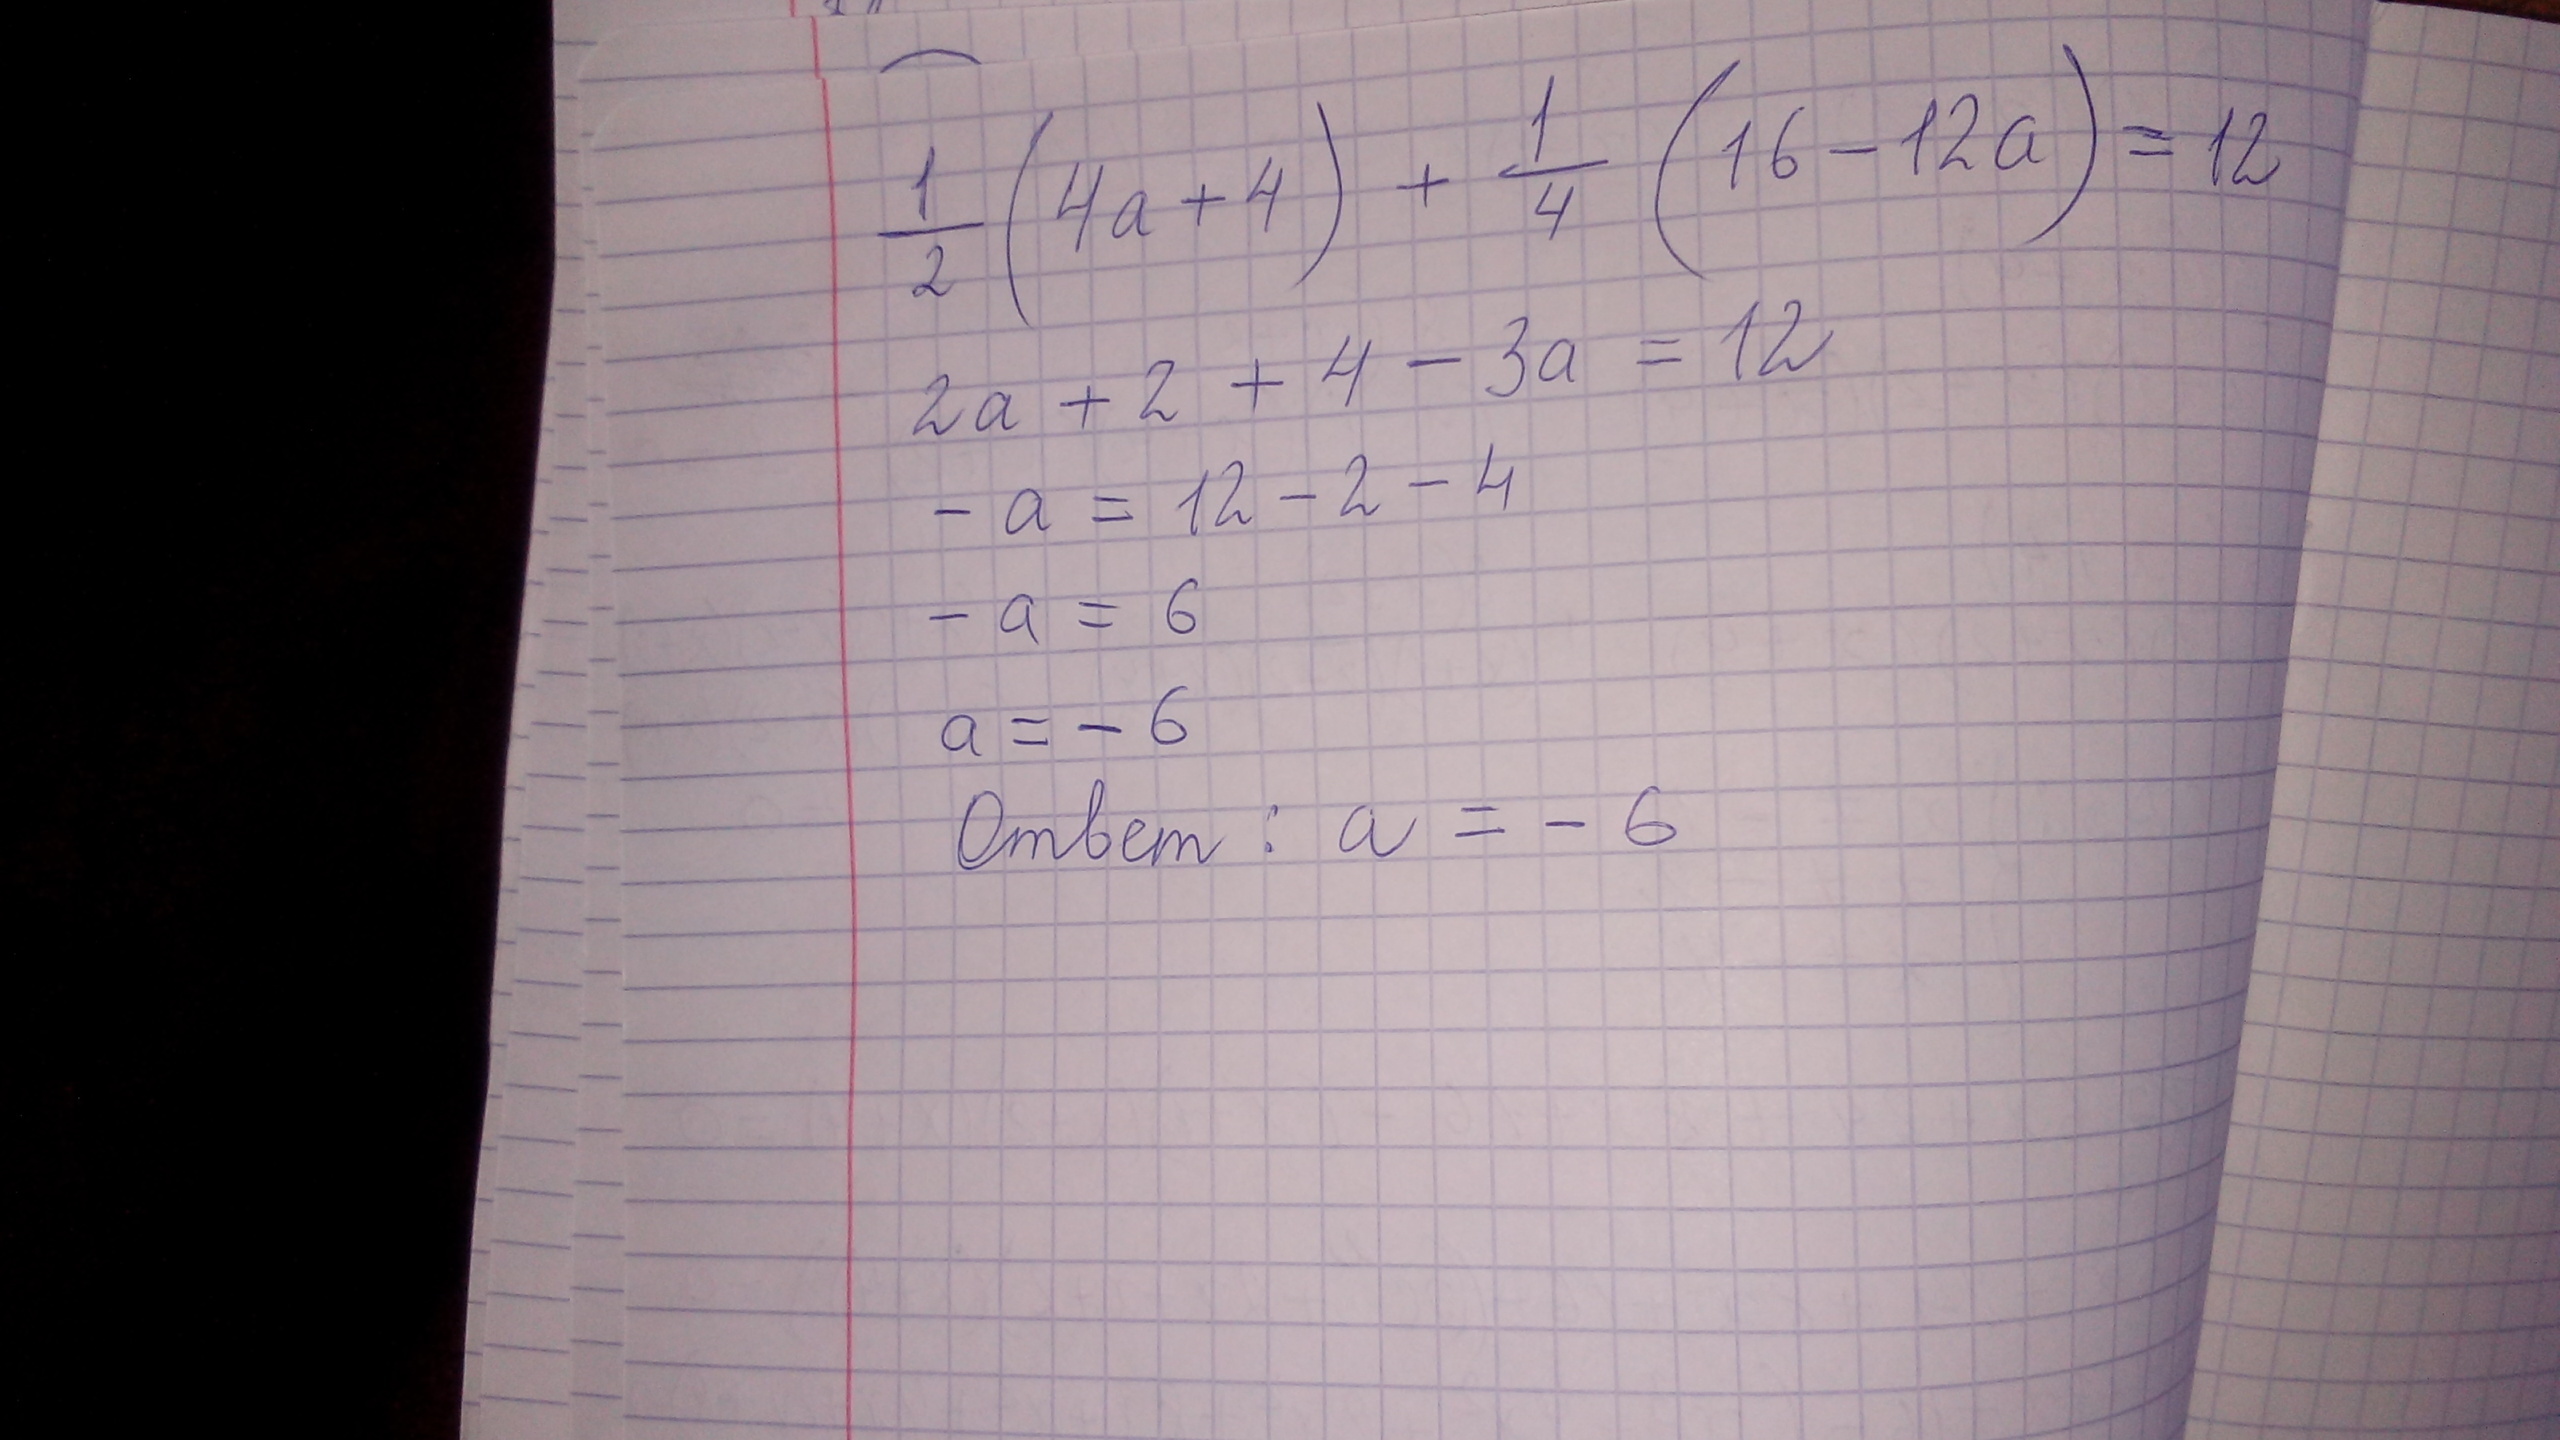 1/2 (4a + 4) + 1/4 (16 - 12a) = 12
2a + 2 + 4 - 3a = 12
- a = 12 - 2 - 4
- a = 6
a = - 6
Ответ : a = - 6